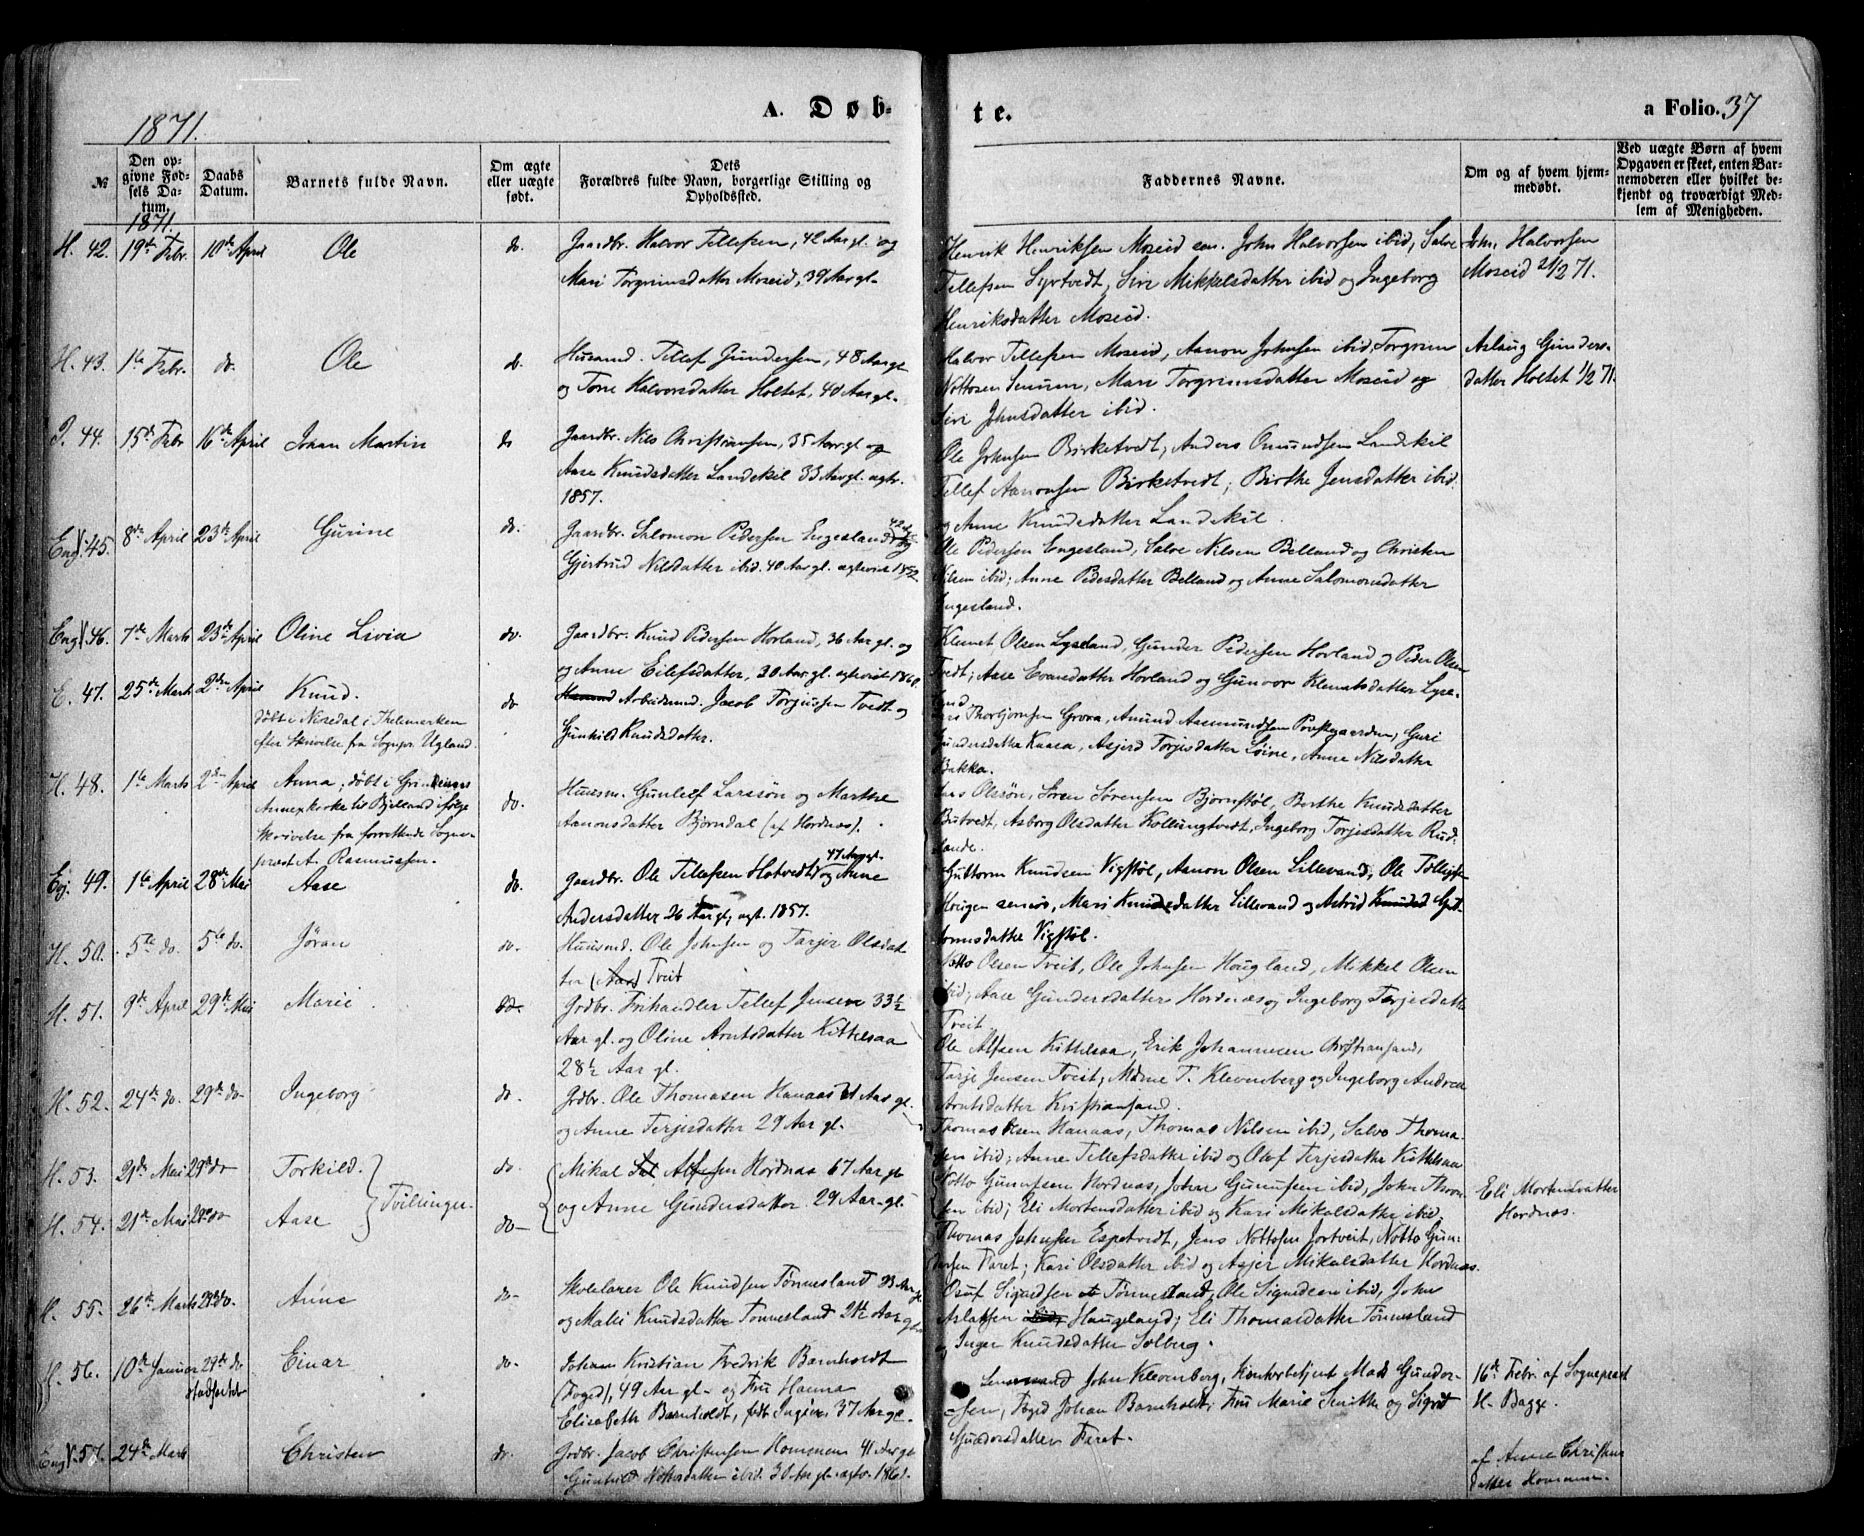 1871.
A. Døb-
te.
a Folio. 37
№
Den op-
givne Fød-
sels Da-
tum.
Daabs
Datum.
Barnets fulde Navn.
Om ægte
eller uægte
født.
Dets
Forældres fulde Navn, borgerlige Stilling og
Opholdssted.
Faddernes Navne.
Om og af hvem hjem-
medøbt.
Ved uægte Børn af hvem
Opgaven er skeet, enten Bar-
nemoderen eller hvilket be-
kjendt og troværdigt Med-
lem af Menigheden.
1871.
H. 42. 19de Febr. 10de April Ole do. Gaardbr. Halvor Tellefsen, 42 Aar gl. og
Mari Torgrimsdatter Moseid, 39 Aar gl.
Henrik Henriksen Moseid sen. John Halvorsen ibid, Salve
Tellefsen Syrtvedt, Siri Mikkelsdatter ibid og Ingeborg
Henriksdatter Moseid.
John Halvorsen
Moseid 21/2 71.
H. 43. 1ste Febr. do. Ole do. Husmd. Tellef Gundersen, 48 Aar gl.
og Tone Halvorsdatter Holtet, 40 Aar gl.
Halvor Tellefsen Moseid, Aanon Johnsen ibid, Torgrim
Nottosen Senum, Mari Torgrimsdatter Moseid og
Siri Johnsdatter ibid.
Aslaug Gunders-
datter Holtet 1/2 71.
44. 15de Febr 16de April Johan Martin do Gaardbr. Nils Christiansen, 35 Aar gl. og
Aase Knudsdatter Landekil 33 Aar gl. egtv.
1857.
Ole Johnsen Birketvedt, Anders Omundsen Landekil
Tellef Aanonsen Birketvedt; Birthe Jensdatter ibid
og Anne Knudsdatter Landekil.
Engl. 45. 8de April 23de April Gurine do. Gaardbr. Salomon Pedersen Engesland 42 og
Gjertrud Nilsdatter ibid. 40 Aar gl. egteviet 1852
Ole Pedersen Engesland, Salve Nilsen Belland og Christen
Nilsen ibid; Anne Pedersdatter Belland og Anne Salomonsdatter
Engesland.
Engl. 46. 7de Marts 23de April Oline Livia do. Gaardbr. Knud Pedersen Horland, 36 Aar gl. og
og Anne Eilefsdatter, 30 Aar gl. egteviet 1860.
Klemet Olsen Lyseland, Gunder Pedersen Horland og Peder Olsen
Tvedt; Aase Evansdatter Horland og Gunvor Klemetsdatter Lyse-
land
E. 47. 25de Marts 2den April Knud. do Arbeidsmd. Jacob Torjussen Tvedt og
døbt i Nissedal i Thelemarken
efter Skrivelse fra Sognepr. Ugland.
Gunhild Knudsdatter.
Thorbjørnsen Grova, Amund Aasmundsen Præstegaarden, Guri
Gundersdatter Kaasa, Asjerd Torjesdatter Løine, Anne Nilsdatter
Bakka.
H. 48. 1ste Marts 2den April Anna, døbt i
Annexkirke til Bjelland ifølge
Skrivelse fra forrettende Sogne-
præst A. Rasmussen.
do. Huusm. Gunleif Larssøn og Marthe
Aanonsdatter Bjørndal (af Hordnæs).
Olssøn, Søren Sørensen Bjørnstøl, Berthe Knudsdatter
Butvedt, Asborg Olsdatter Kollungtvedt, Ingeborg Torjesdatter Rud-
lande.
Eg. 49. 1ste April 28de Mai Aase do. Gaardbr. Ole Tellefsen Hotvedt 47 Aar gl. og Anne
Andersdatter 26 Aar gl, egt. 1857.
Guttorm Knudsen Vigstøl, Aanon Olsen Lillevand, Ole Tellefs-
Hougen senior, Mari Knudsdatter Lillevand og Astrid Gut-
tormsdatter Vigstøl.
H. 50. 5te do. 5te do. Jøran do. Huusmd. Ole Johnsen og Tarjer Olsdat
ter Tveit
Notto Olsen Tveit, Ole Johnsen Hougland, Mikkel Olsen
ibid, Aase Gundersdatter Hordnæs og Ingeborg Terjesdatter
Tveit.
H. 51. 9de April 29de Mai Marie do. Grdbr. Frihandler Tellef Jensen 33½
Aar gl. og Oline Arntsdatter Kittelsaa
28½ Aar gl.
Ole Alfsen Kittelsaa, Erik Johannesen Christiansand,
Tarje Jensen Tveit, Mdme T. Klevenberg og Ingeborg Andrea
Arntsdatter Kristiansand.
H. 52. 24de do. 29de do Ingeborg do. Grdbr. Ole Thomasen Hanaas 21 Aar gl.
og Anne Terjesdatter 29 Aar gl.
Thomas Olsen Hanaas, Thomas Nilsen ibid, Salve Thoma-
sen ibid; Anne Tellefsdatter ibid og Olaf Terjesdatter Kittelsaa
H. 53. 21de Mai 29de do Torkild. do. Mikal Alfsen Hordnæs 67 Aar gl
Tvillinger.
H. 54. 21de Mai 29de do Aase do og Anne Gundersdatter 29 Aar gl.
Notto Gunufsen Hordnæs, John Gunufsen ibid, John Thom-
sen ibid; Eli Mortensdatter ibid og Kari Mikalsdatter ibid.
Thomas Johnsen Espetvedt, Jens Nottosen Jortveit, Notto Gun-
dersen Faret; Kari Olsdatter ibid og Asjer Mikalsdatter Hordnæs
Eli Mortensdatter
Hordnæs.
H. 55. 26de Marts 29de do. Anne do. Skolelærer Ole Knudsen Tønnesland 23 Aar gl
og Malii Knudsdatter Tønnesland 21½ Aar gl.
Osuf Sigurdsen Tønnesland, Ole Sigurdsen ibid, John
Aslaksen Haugeland; Eli Thomasdatter Tønnesland
og Inger Knudsdatter Solberg.
H. 56. 10de Januar 29de do Einar do. Johan Kristian Fredrik Barnholdt
stadfæstet
(Foged), 49 Aar gl. og Fru Hanna
Elisabeth Barnholdt, født Ingier, 37 Aar gl.
Lensmand John Klevenberg, Kontorbetjent Mads Gunder-
sen, Foged Johan Barnholdt; Frue Marie Smith og Sigrid
Gundersdatter Faret.
16de Febr. af Sognepræst
H. Bagge.
Engl. 57. 24de Marts Christen do. Grdbr. Jacob Christensen Hommen 41 Aar gl
Gunhild Nilsdatter ibid. 30 Aar gl. egtv. 1861.
af Anne Christens
datter Hommen.